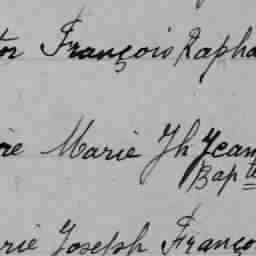 tor François Rapha
ire Marie Jh Jean
Bapte
rie Joseph Franço